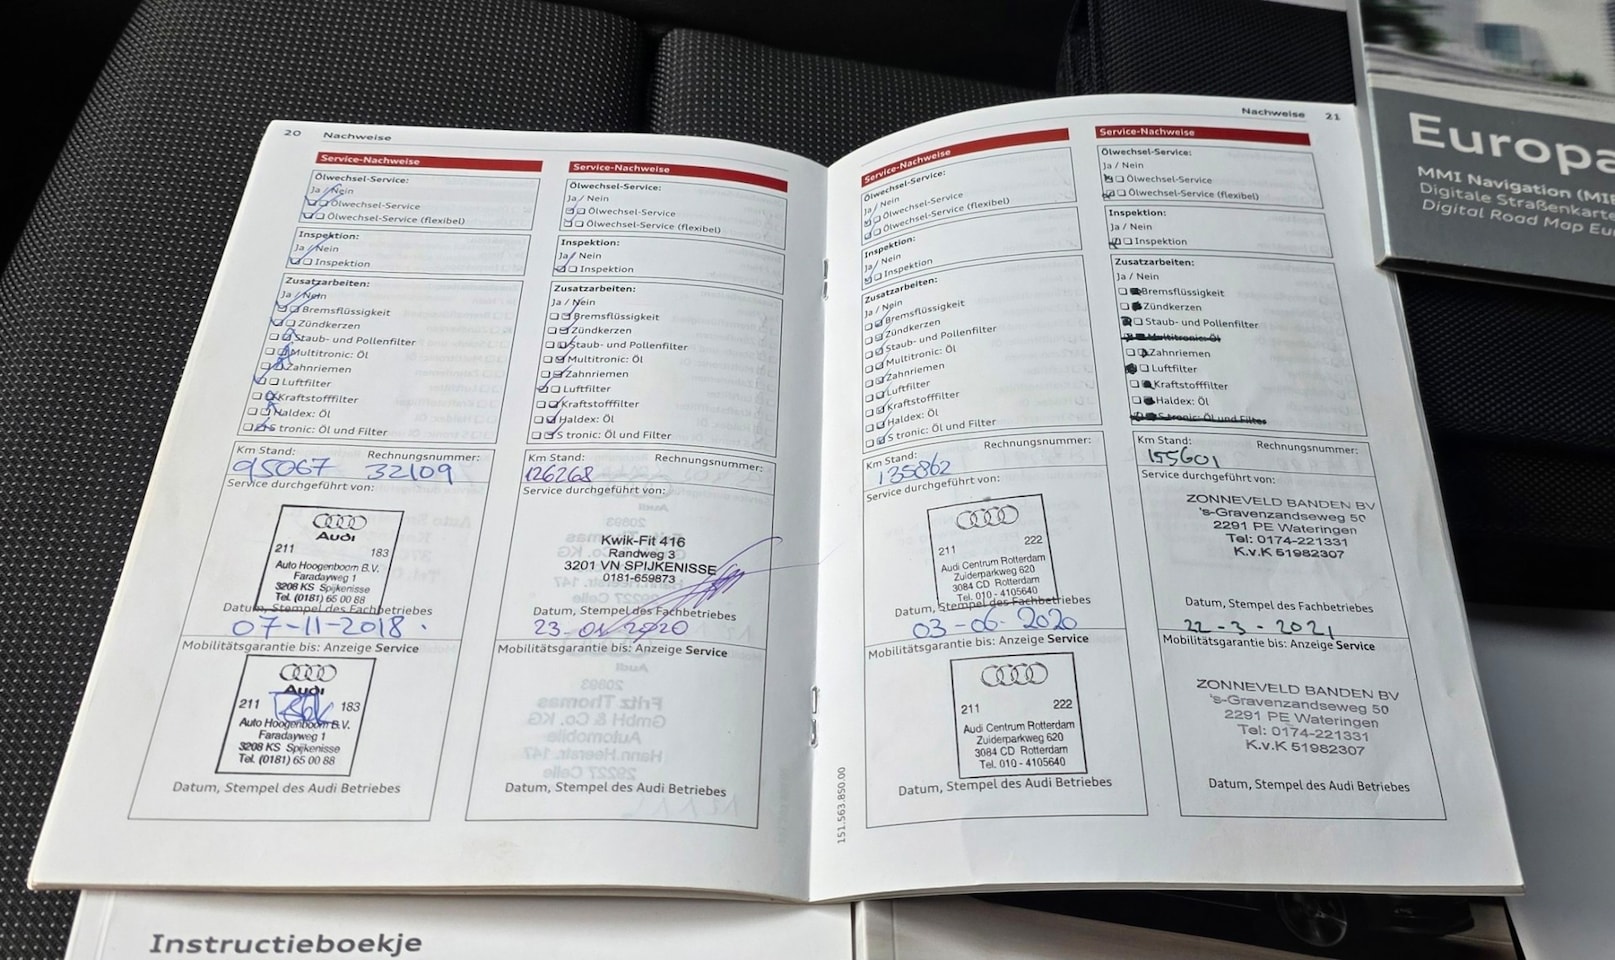 20 Nachweise
Service-Nachweise
Ölwechsel-Service:
Ja / Nein
Ölwechsel-Service
Ölwechsel-Service (flexibel)
Inspektion:
Ja / Nein
Inspektion
Zusatzarbeiten:
Ja / Nein
Bremsflüssigkeit
Zündkerzen
Staub- und Pollenfilter
Multitronic: Öl
Zahnriemen
Luftfilter
Kraftstofffilter
Haldex: Öl
S tronic: Öl und Filter
Km Stand: Rechnungsnummer:
95067 32109
Service durchgeführt von:
Audi
211 183
Auto Hoogenboom B.V.
Faradayweg 1
3208 KS Spijkenisse
Tel. (0181) 65 00 88
Datum, Stempel des Fachbetriebes
07-11-2018.
Mobilitätsgarantie bis: Anzeige Service
Audi
211 183
Auto Hoogenboom B.V.
Faradayweg 1
3208 KS Spijkenisse
Tel. (0181) 65 00 88
Datum, Stempel des Audi Betriebes
Service-Nachweise
Ölwechsel-Service:
Ja / Nein
Ölwechsel-Service
Ölwechsel-Service (flexibel)
Inspektion:
Ja / Nein
Inspektion
Zusatzarbeiten:
Ja / Nein
Bremsflüssigkeit
Zündkerzen
Staub- und Pollenfilter
Multitronic: Öl
Zahnriemen
Luftfilter
Kraftstofffilter
Haldex: Öl
S tronic: Öl und Filter
Km Stand: Rechnungsnummer:
126268
Service durchgeführt von:
Kwik-Fit 416
Randweg 3
3201 VN SPIJKENISSE
0181-659873
Datum, Stempel des Fachbetriebes
23-01-2020
Mobilitätsgarantie bis: Anzeige Service
Datum, Stempel des Audi Betriebes
Nachweise 21
Service-Nachweise
Ölwechsel-Service:
Ja / Nein
Ölwechsel-Service
Ölwechsel-Service (flexibel)
Inspektion:
Ja / Nein
Inspektion
Zusatzarbeiten:
Ja / Nein
Bremsflüssigkeit
Zündkerzen
Staub- und Pollenfilter
Multitronic: Öl
Zahnriemen
Luftfilter
Kraftstofffilter
Haldex: Öl
S tronic: Öl und Filter
Km Stand: Rechnungsnummer:
135862
Service durchgeführt von:
211 222
Audi Centrum Rotterdam
Zuiderparkweg 620
3084 CD Rotterdam
Tel. 010 - 4105640
Datum, Stempel des Fachbetriebes
03-06-2020
Mobilitätsgarantie bis: Anzeige Service
211 222
Audi Centrum Rotterdam
Zuiderparkweg 620
3084 CD Rotterdam
Tel. 010 - 4105640
Datum, Stempel des Audi Betriebes
151.563.850.00
Service-Nachweise
Ölwechsel-Service:
Ja / Nein
Ölwechsel-Service
Ölwechsel-Service (flexibel)
Inspektion:
Ja / Nein
Inspektion
Zusatzarbeiten:
Ja / Nein
Bremsflüssigkeit
Zündkerzen
Staub- und Pollenfilter
Multitronic: Öl
Zahnriemen
Luftfilter
Kraftstofffilter
Haldex: Öl
S tronic: Öl und Filter
Km Stand: Rechnungsnummer:
155601
Service durchgeführt von:
ZONNEVELD BANDEN BV
's-Gravenzandseweg 50
2291 PE Wateringen
Tel: 0174-221331
K.v.K 51982307
Datum, Stempel des Fachbetriebes
22-3-2021
Mobilitätsgarantie bis: Anzeige Service
ZONNEVELD BANDEN BV
's-Gravenzandseweg 50
2291 PE Wateringen
Tel: 0174-221331
K.v.K 51982307
Datum, Stempel des Audi Betriebes
Europa
MMI Navigation
Digitale Straßenkarte
Digital Road Map
Instructieboekje